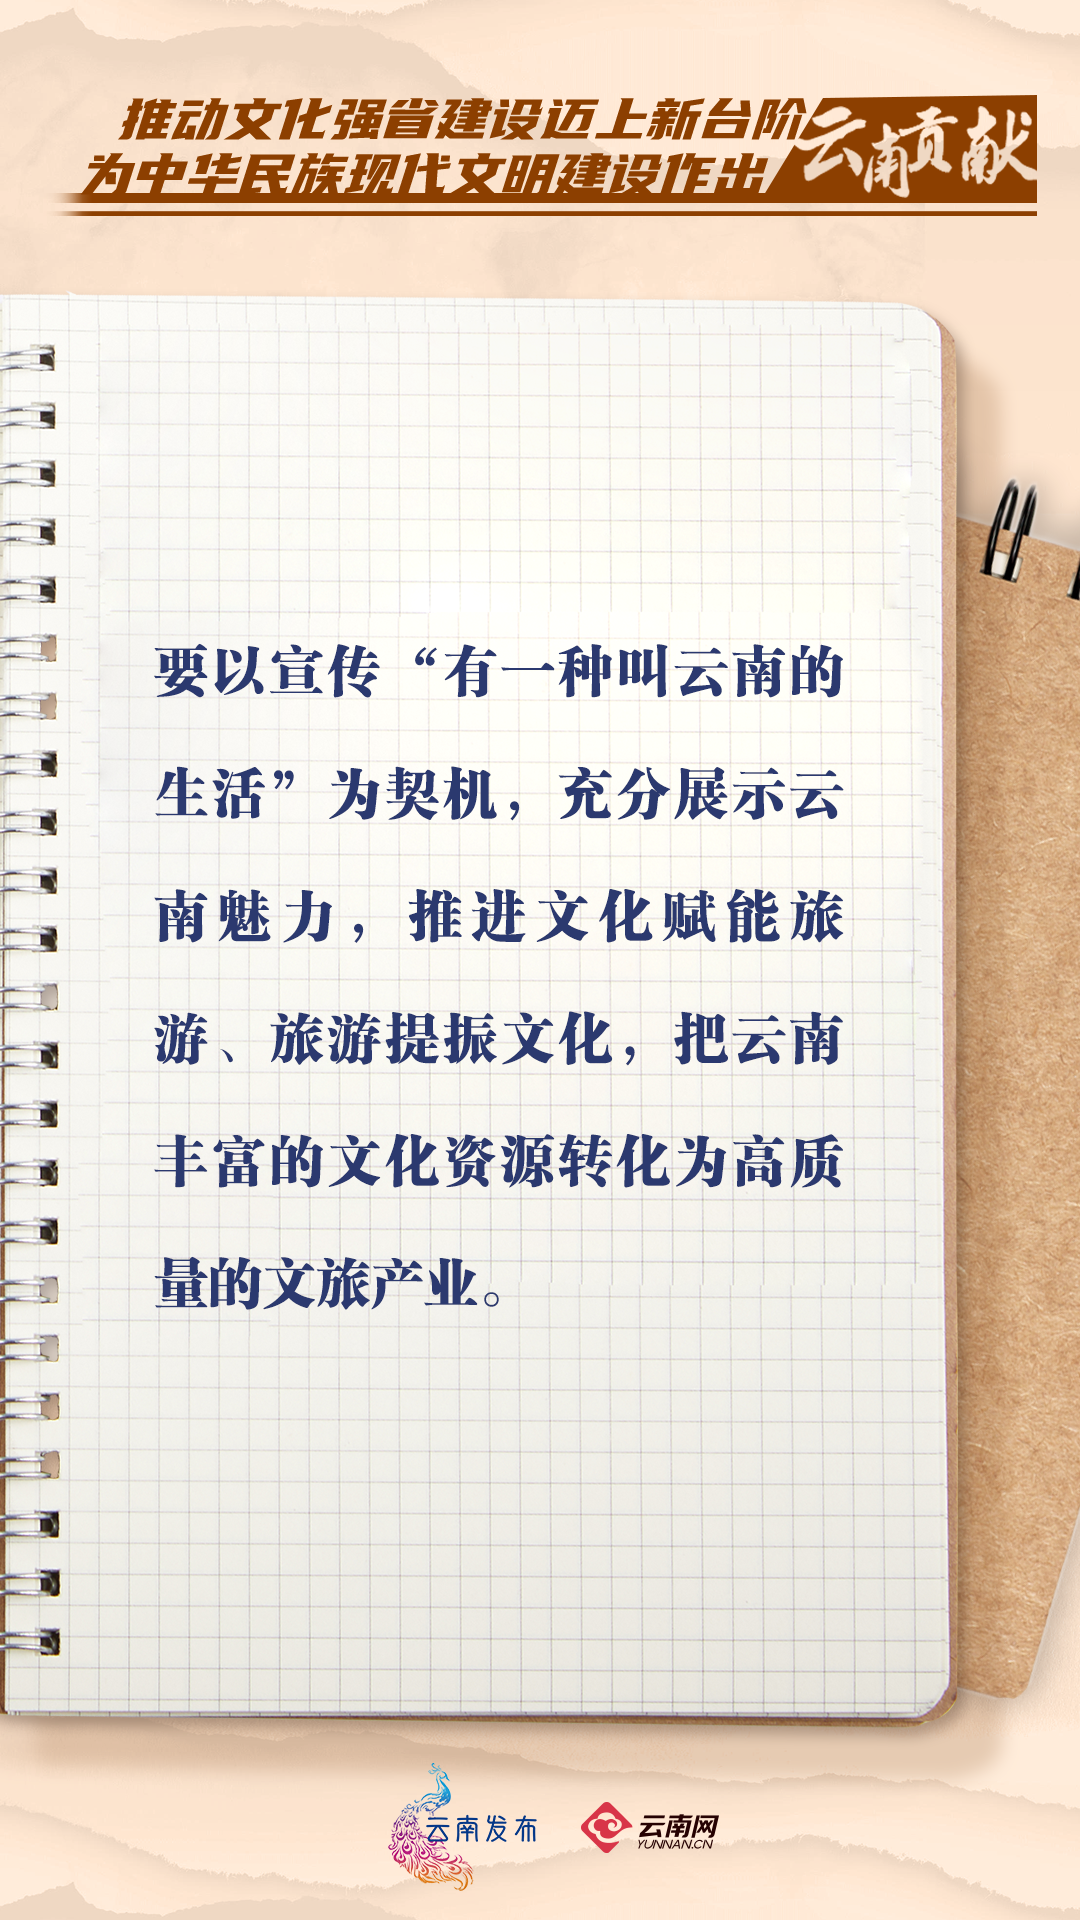 推动文化强省建设迈上新台阶
为中华民族现代文明建设作出 云南贡献
要以宣传“有一种叫云南的
生活”为契机，充分展示云
南魅力，推进文化赋能旅
游、旅游提振文化，把云南
丰富的文化资源转化为高质
量的文旅产业。
云南发布 云南网
YUNNAN.CN